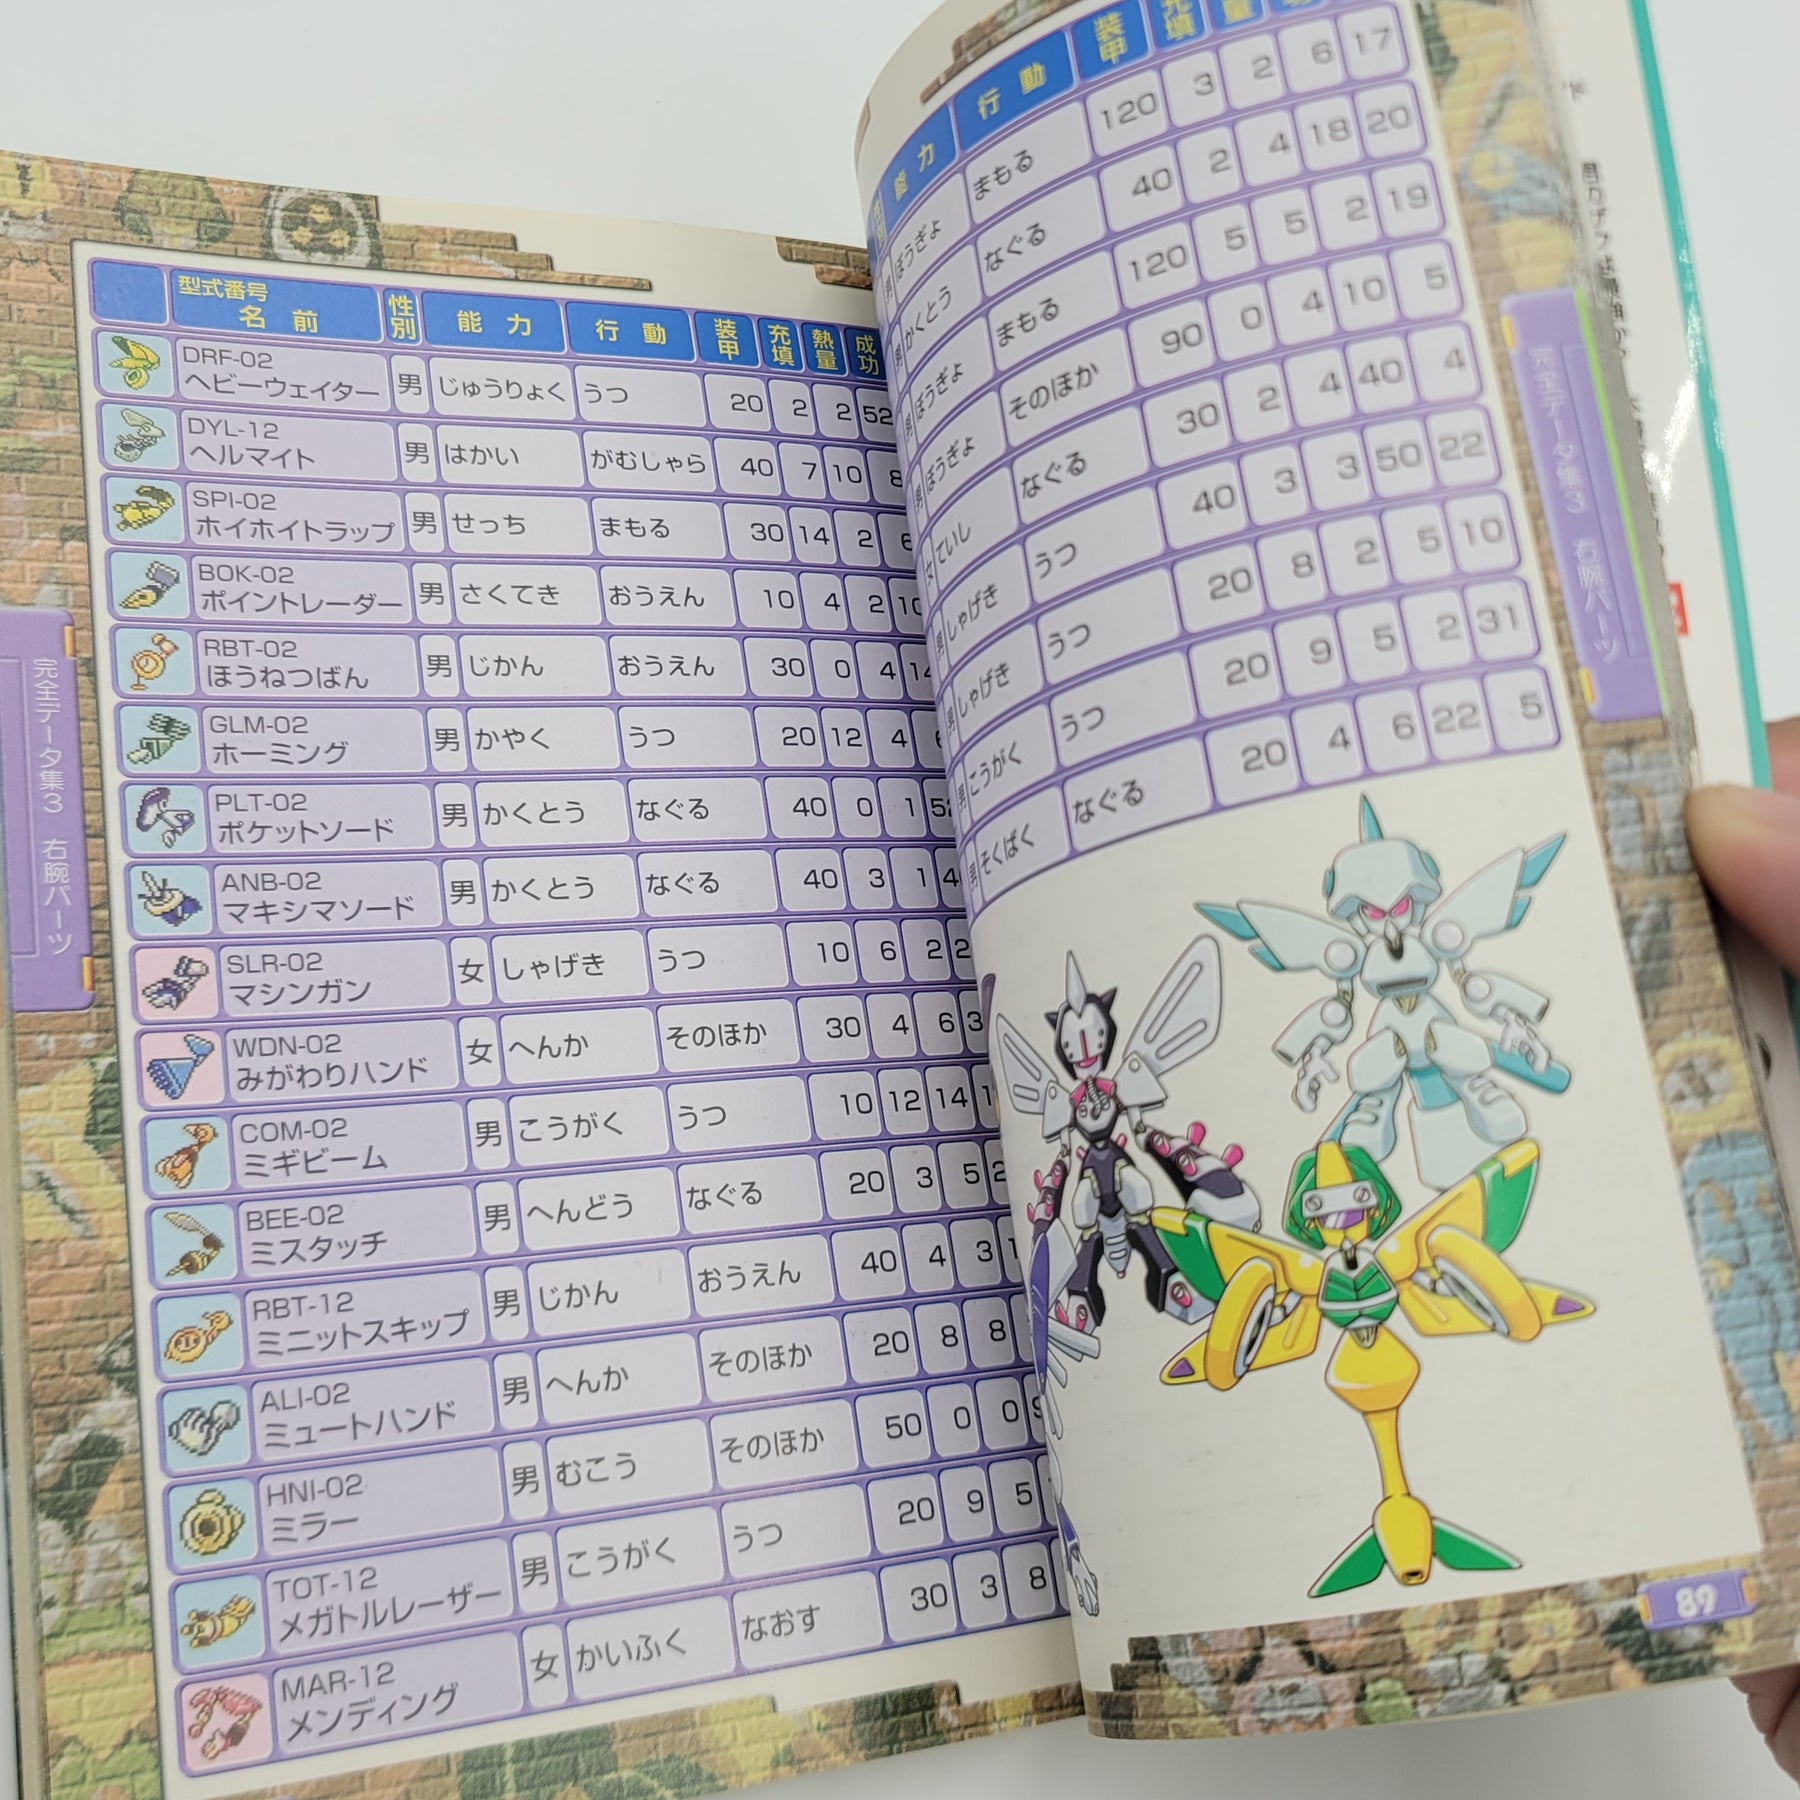 完全データ集3 右腕パーツ
型式番号
名前 性別 能力 行動 装甲 充填 熱量 成功
DRF-02
ヘビーウェイター 男 じゅうりょく うつ 20 2 2 52
DYL-12
ヘルマイト 男 はかい がむしゃら 40 7 10 8
SPI-02
ホイホイトラップ 男 せっち まもる 30 14 2
BOK-02
ポイントレーダー 男 さくてき おうえん 10 4 2
RBT-02
ほうねつばん 男 じかん おうえん 30 0 4
GLM-02
ホーミング 男 かやく うつ 20 12 4
PLT-02
ポケットソード 男 かくとう なぐる 40 0 1
ANB-02
マキシマソード 男 かくとう なぐる 40 3 1
SLR-02
マシンガン 女 しゃげき うつ 10 6 2
WDN-02
みがわりハンド 女 へんか そのほか 30 4 6
COM-02
ミギビーム 男 こうがく うつ 10 12 14
BEE-02
ミスタッチ 男 へんどう なぐる 20 3 5
RBT-12
ミニットスキップ 男 じかん おうえん 40 4 3
ALI-02
ミュートハンド 男 へんか そのほか 20 8 8
HNI-02
ミラー 男 むこう そのほか 50 0 0
TOT-12
メガトルレーザー 男 こうがく うつ 20 9 5
MAR-12
メンディング 女 かいふく なおす 30 3 8
能力 行動 装甲 充填 量
男 ぼうぎょ まもる 120 3 2 6 17
男 かくとう なぐる 40 2 4 18 20
男 ぼうぎょ まもる 120 5 5 2 19
男 ぼうぎょ そのほか 90 0 4 10 5
女 ていし なぐる 30 2 4 40 4
男 しゃげき うつ 40 3 3 50 22
男 しゃげき うつ 20 8 2 5 10
男 こうがく うつ 20 9 5 2 31
男 そくばく なぐる 20 4 6 22 5
完全データ集3 右腕パーツ
89